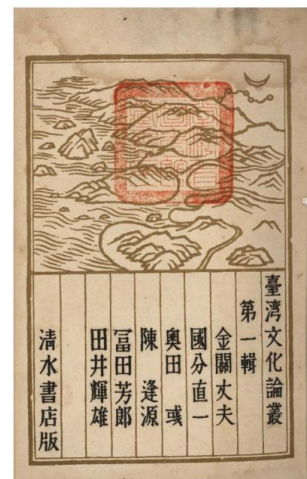 臺灣文化論叢
第一輯
金關丈夫
國分直一
奧田彧
陳逢源
冨田芳郎
田井輝雄
清水書店版